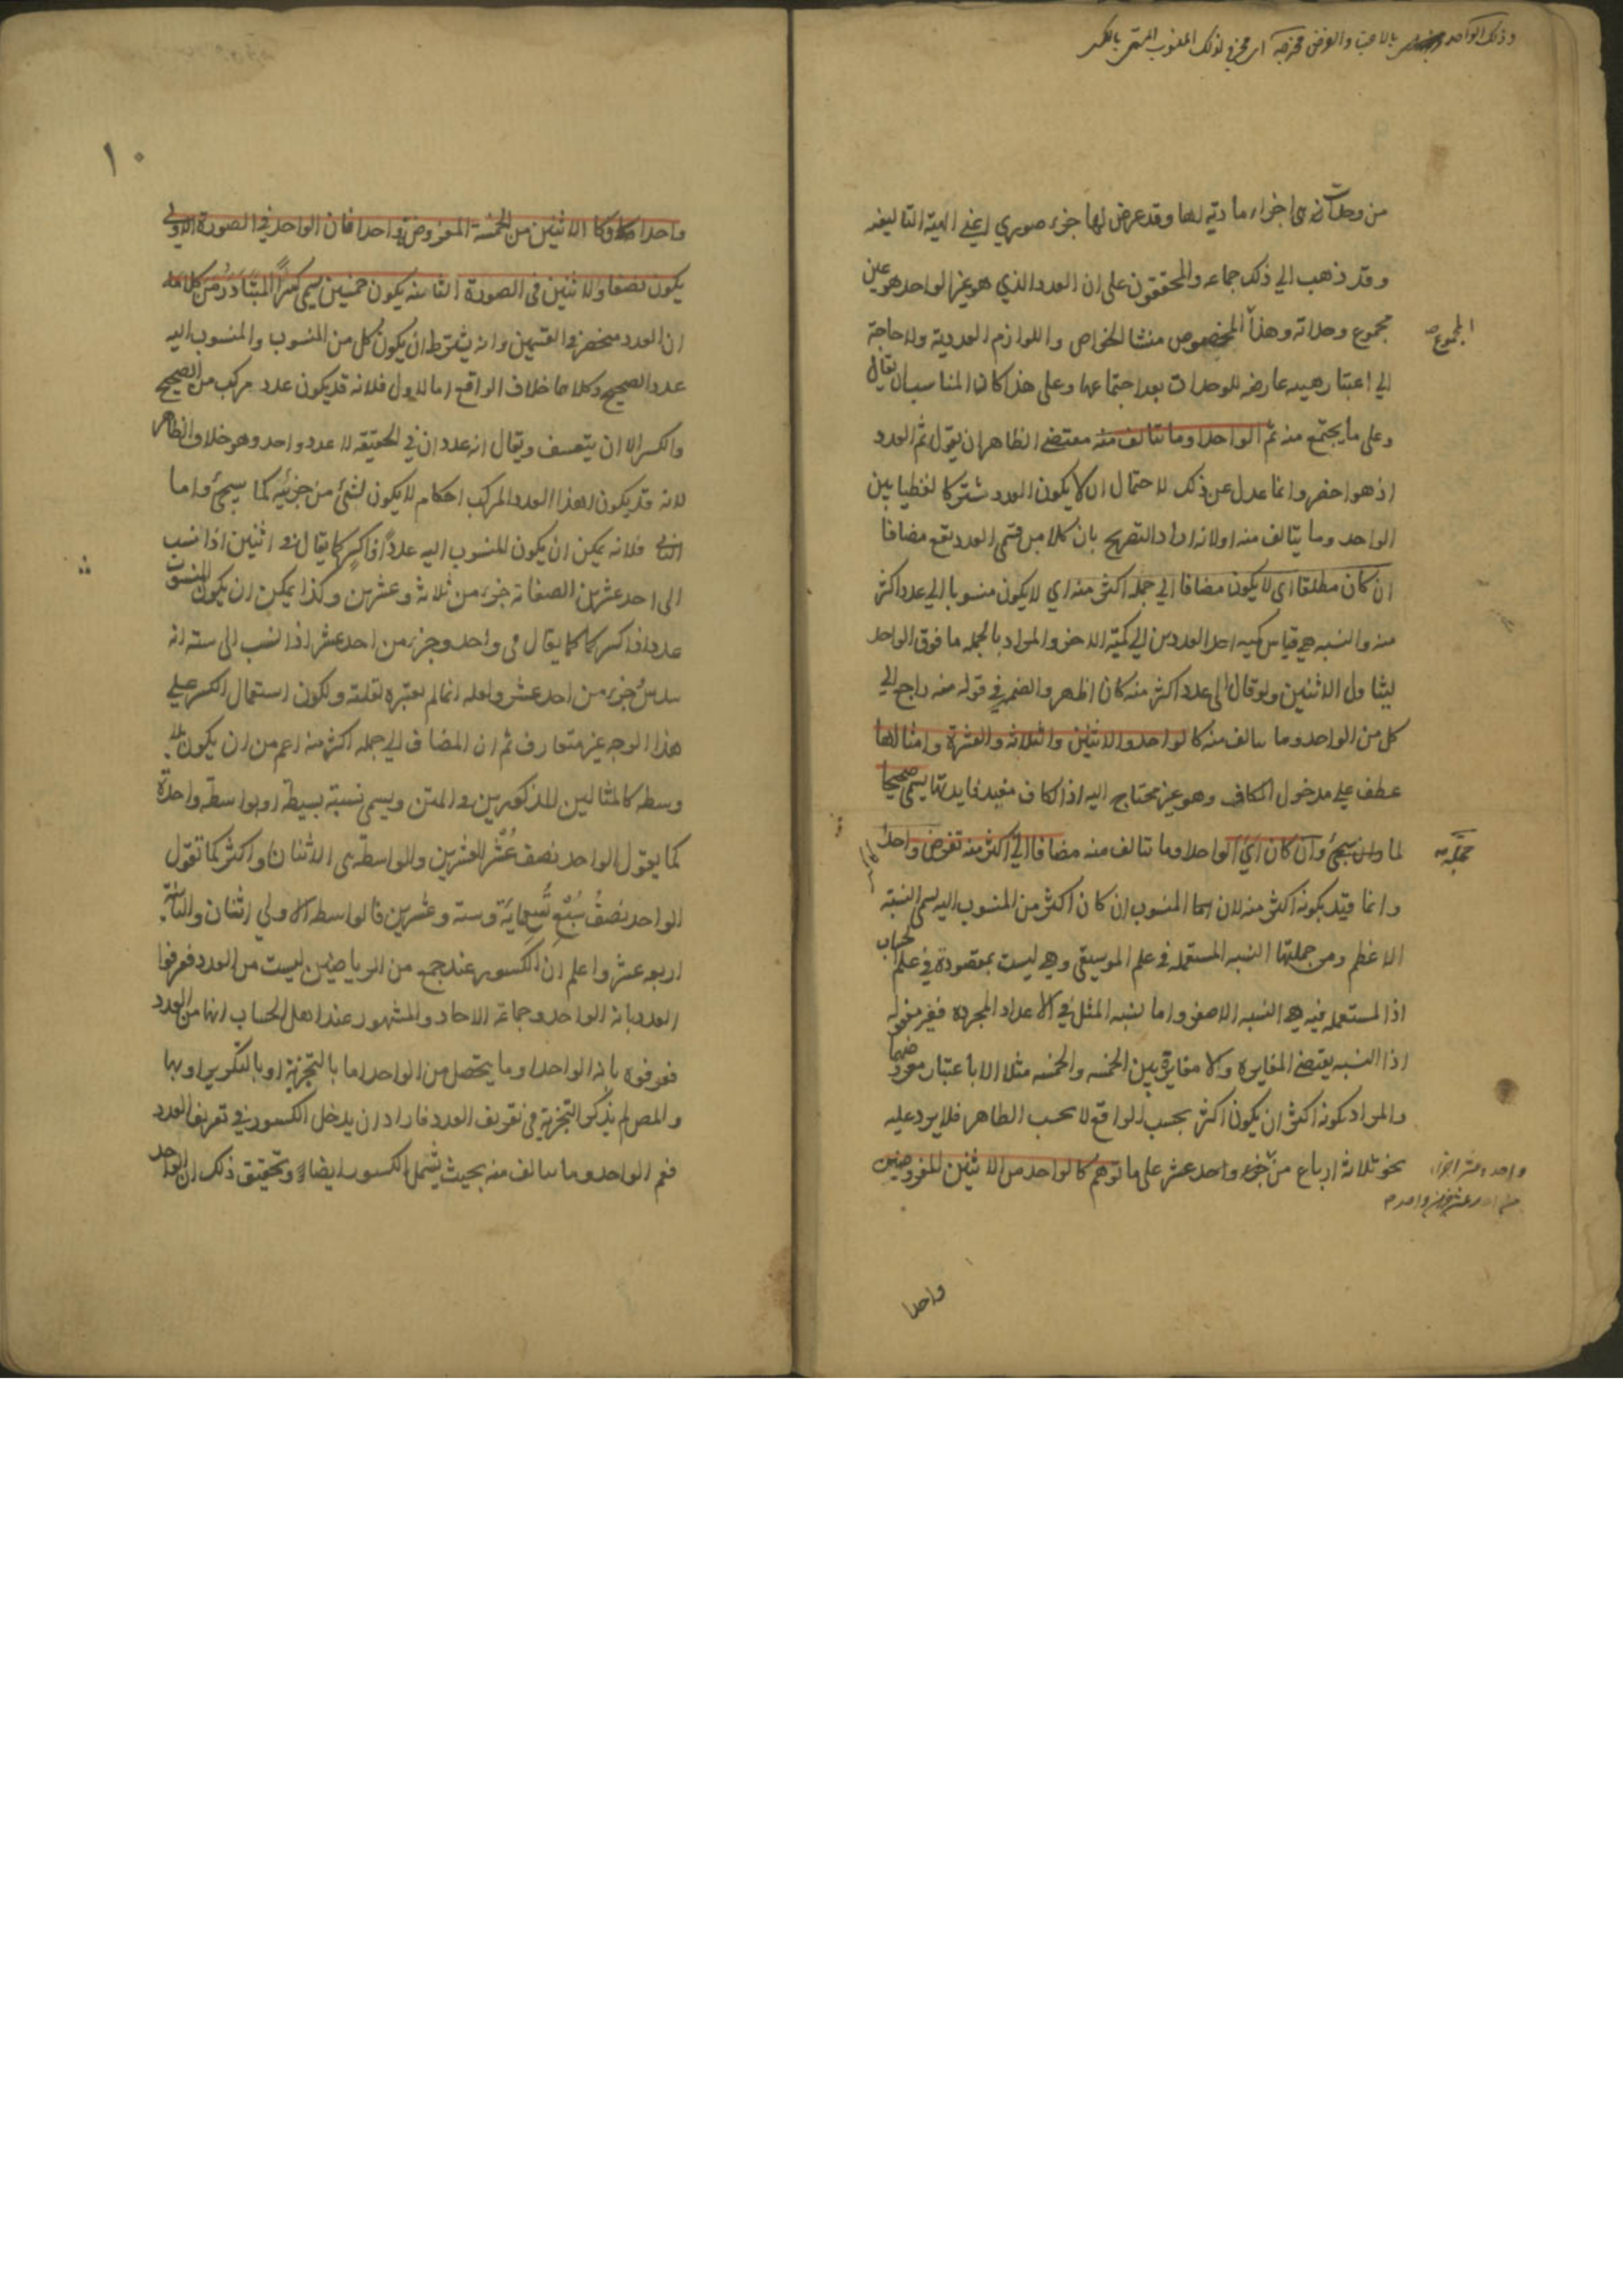 وذلك الواحد بالاجزاء والفرض مخرجه اى مخرج لذلك المنسوب المسمى بالكسر
من وحدات هى اجزاء مادية لها وقد عرض لها جزء صورى اعنى الهيئة التاليفية
وقد ذهب الي ذلك جماعه والمحققون على ان العدد الذي هو غير الواحد هو عين
مجموع وحداته وهذا المخصوص منشا الخواص واللوازم العددية ولا حاجة
المجموع
الي اعتبار هيئة عارضه للوحدات بعد اجتماعها وعلى هذا كان المناسب ان يقال
وعلى ما يجتمع منه ثم الواحد وما يتالف منه مقتضى الظاهر ان يقول ثم العدد
اذ هو اخصر وانما عدل عن ذلك لاحتمال ان لا يكون العدد مشتركا لفظيا بين
الواحد وما يتالف منه اولانه اراد التصريح بان كلا من قسمى العدد يقع مضافا
ان كان مطلقا اى لا يكون مضافا الي جمله اكثر منه اي لا يكون منسوبا الي عدد اكثر
منه والنسبه هي قياس كميه احد العددين الي كمية الاخر والمراد بالجمله ما فوق الواحد
ليتناول الاثنين ولو قال الى عدد اكثر منه كان اظهر والضمير في قوله منه راجع الي
كل من الواحد وما يتالف منه كالواحد والاثنين والثلاثه والعشرة وامثالها
عطف علي مدخول الكاف وهو غير محتاج اليه اذ الكاف مفيد فايدتها يسمى صحيحا
لما سيجئ وان كان اي الواحد وما تتالف منه مضافا الي اكثر منه تفرض واحدا
جملة
وانما قيد بكونه اكثر منه لان المنسوب ان كان اكثر من المنسوب اليه يسمى النسبة
الاعظم ومن جملتها النسبه المستعمله في علم الموسيقى وهي ليست بمقصودة في علم الحساب
اذ المستعمله فيه هي النسبه الاصغر واما نسبه المثل في الاعداد المجرده فغير معقوله
اذ النسبه يقتضى المغايره ولا مغايرة بين الخمسه والخمسه مثلا الا باعتبار معروضهما
والمراد بكونه اكثر ان يكون اكثر بحسب الواقع لا بحسب الظاهر فلا يرد عليه
نحو ثلاثة ارباع من جزء واحد عشر على ما توهم كالواحد من الاثنين المفروضين
واحد عشر اجزاء
واحدا
١٠
واحدا وكالاثنين من الخمسة المفروضة واحدا فان الواحد في الصورة الاولى
يكون نصفا والاثنين فى الصورة الثانيه يكون خمسين يسمى كسرا المتبادر من كلامه
ان العدد منحصر في القسمين وانه يشترط ان يكون كل من المنسوب والمنسوب اليه
عدد الصحيح وكلاهما خلاف الواقع اما الاول فلانه قد يكون عدد مركب من الصحيح
والكسر الا ان يتعسف ويقال انه عددان في الحقيقه لا عدد واحد وهو خلاف الظاهر
لانه قد يكون لهذا العدد المركب احكام لا يكون لشئ من جزئيه كما سيجئ واما
الثانى فلانه يمكن ان يكون المنسوب اليه عددا ذا كسر كما يقال في اثنين اذا نسب
الى احد عشر ونصف انه جزء من ثلاثة وعشرين وكذا يمكن ان يكون المنسوب
عددا ذا كسر كما يقال فى واحد وجزء من احد عشر اذا نسب الى سته انه
سدس جزء من احد عشر ولعله انما لم يعتبره لقلته ولكون استعمال الكسر علي
هذا الوجه غير متعارف ثم ان المضاف الي جمله اكثر منه اعم من ان يكون بلا
وسطه كالمثالين المذكورين في المتن ويسمى نسبة بسيطة او بواسطه واحدة
كما يقول الواحد نصف عشر العشرين والواسطة هى الاثنان او اكثر كما تقول
الواحد نصف سبع تسعماية وستة وعشرين فالواسطه الاولي اثنان والثانية
اربعه عشر واعلم ان الكسور عند جمع من الرياضيين ليست من العدد فعرفوا
العدد بانه الواحد وجماعة الاحاد والمشهور عند اهل الحساب انها من العدد
فعرفوه بانه الواحد وما يتحصل من الواحد اما بالتجزية او بالتكرير او بهما
والمص لم يذكر التجزية فى تعريف العدد فاراد ان يدخل الكسور في تعريف العدد
فعم الواحد وما يتالف منه بحيث يشمل الكسور ايضا وتحقيق ذلك ان الواحد